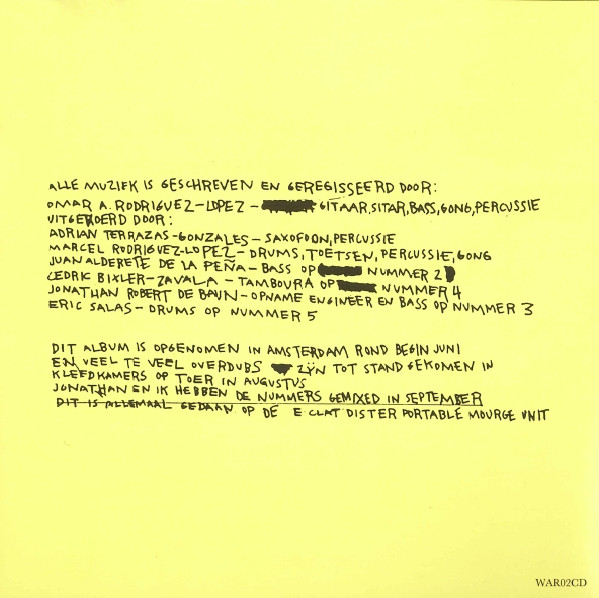 ALLE MUZIEK IS GESCHREVEN EN GEREGISSEERD DOOR:
OMAR A. RODRIGUEZ-LOPEZ - GITAAR, SITAR, BASS, GONG, PERCUSSIE
UITGEVOERD DOOR:
ADRIAN TERRAZAS-GONZALES - SAXOFOON, PERCUSSIE
MARCEL RODRIGUEZ-LOPEZ - DRUMS, TOETSEN, PERCUSSIE, GONG
JUAN ALDERETE DE LA PEÑA - BASS OP NUMMER 2
CEDRIC BIXLER-ZAVALA - TAMBOURA OP NUMMER 4
JONATHAN ROBERT DE BRUIN - OPNAME ENGINEER EN BASS OP NUMMER 3
ERIC SALAS - DRUMS OP NUMMER 5
DIT ALBUM IS OPGENOMEN IN AMSTERDAM ROND BEGIN JUNI
EN VEEL TE VEEL OVERDUBS ZIJN TOT STAND GEKOMEN IN
KLEEDKAMERS OP TOER IN AUGUSTUS
JONATHAN EN IK HEBBEN DE NUMMERS GEMIXED IN SEPTEMBER
DIT IS ALLEMAAL GEDAAN OP DE E CLAT DISTER PORTABLE MOURGE UNIT
WAR02CD